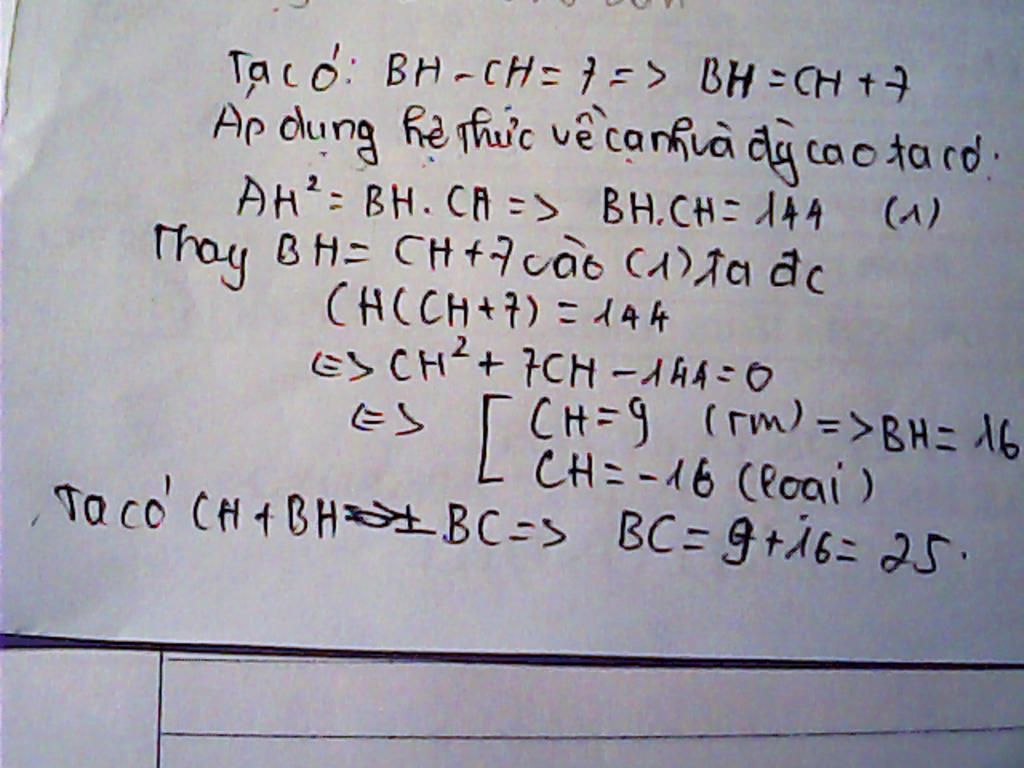 Ta có: BH - CH = 7 => BH = CH + 7
Áp dụng hệ thức về cạnh và đg cao ta có:
AH² = BH. CA => BH.CH = 144 (1)
Thay BH = CH + 7 vào (1) ta đc
CH(CH+7) = 144
<=> CH² + 7CH - 144 = 0
<=> [ CH = 9 (TM) => BH = 16
CH = -16 (loại)
Ta có CH + BH = BC => BC = 9 + 16 = 25.